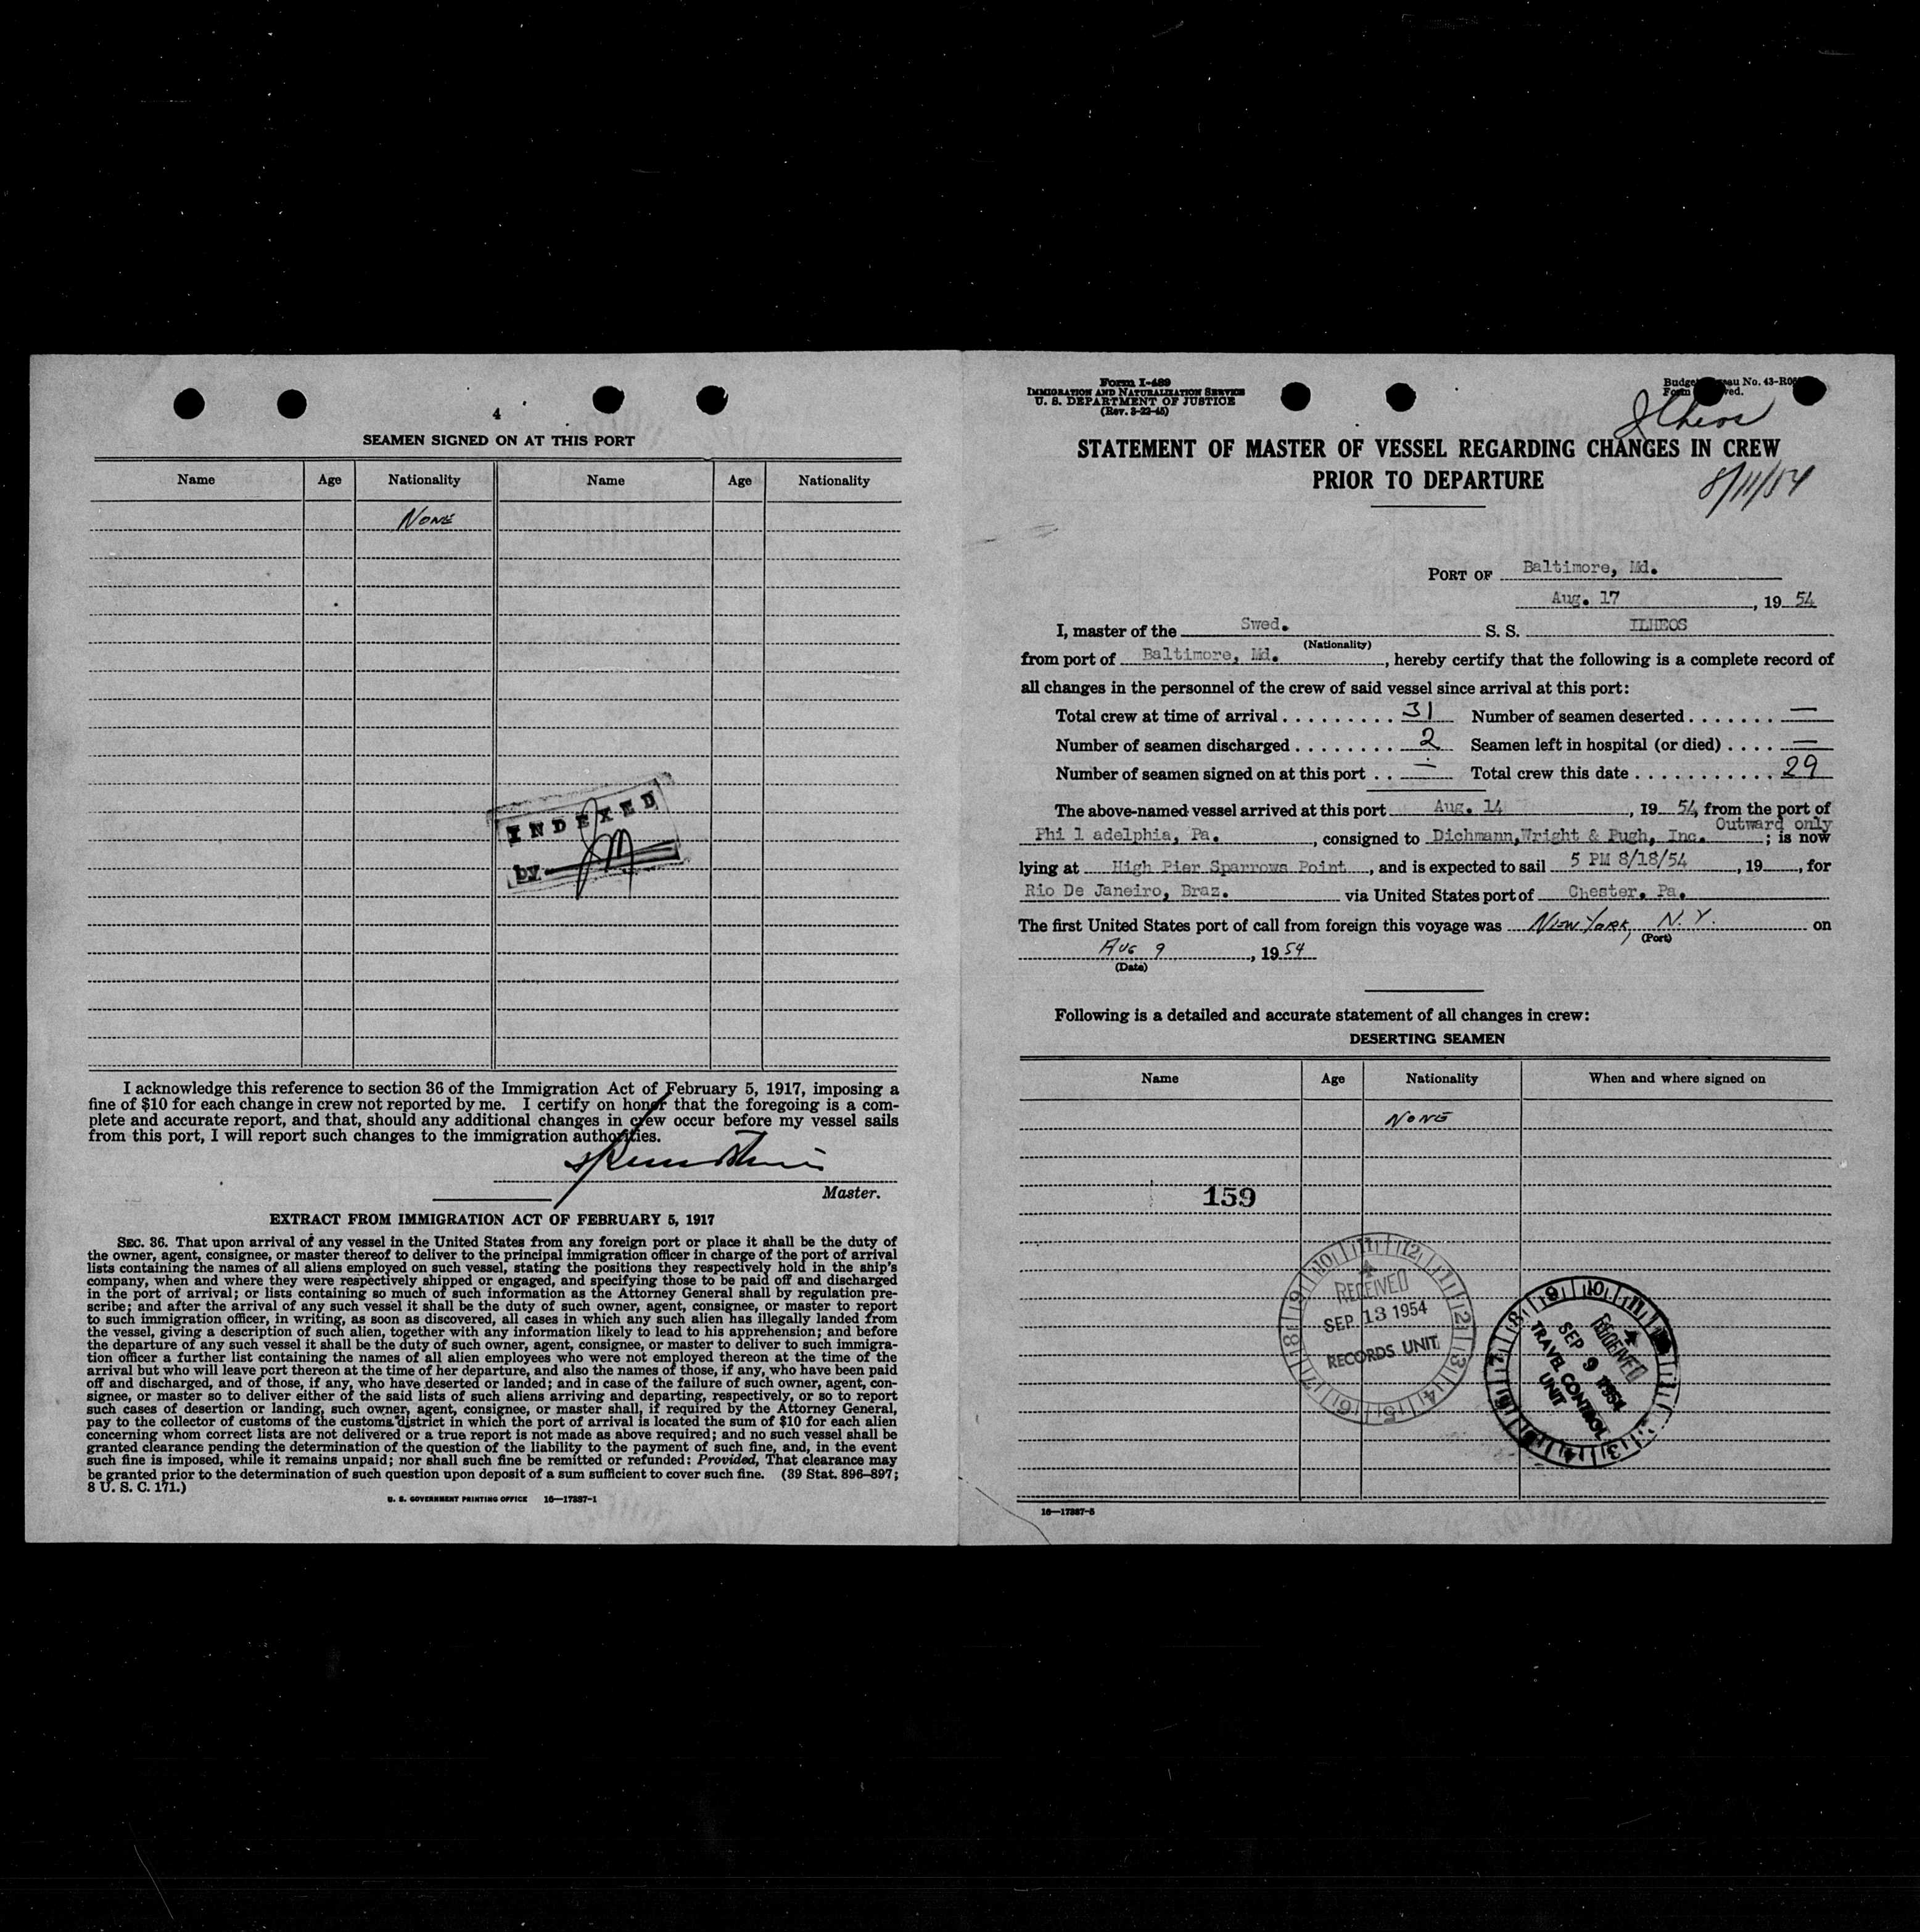 4
SEAMEN SIGNED ON AT THIS PORT
Name Age Nationality Name Age Nationality
NONE
INDEXED
by
I acknowledge this reference to section 36 of the Immigration Act of February 5, 1917, imposing a
fine of $10 for each change in crew not reported by me. I certify on honor that the foregoing is a com-
plete and accurate report, and that, should any additional changes in crew occur before my vessel sails
from this port, I will report such changes to the immigration authorities.
Master.
EXTRACT FROM IMMIGRATION ACT OF FEBRUARY 5, 1917
SEC. 36. That upon arrival of any vessel in the United States from any foreign port or place it shall be the duty of
the owner, agent, consignee, or master thereof to deliver to the principal immigration officer in charge of the port of arrival
lists containing the names of all aliens employed on such vessel, stating the positions they respectively hold in the ship's
company, when and where they were respectively shipped or engaged, and specifying those to be paid off and discharged
in the port of arrival; or lists containing so much of such information as the Attorney General shall by regulation pre-
scribe; and after the arrival of any such vessel it shall be the duty of such owner, agent, consignee, or master to report
to such immigration officer, in writing, as soon as discovered, all cases in which any such alien has illegally landed from
the vessel, giving a description of such alien, together with any information likely to lead to his apprehension; and before
the departure of any such vessel it shall be the duty of such owner, agent, consignee, or master to deliver to such immigra-
tion officer a further list containing the names of all alien employees who were not employed thereon at the time of the
arrival but who will leave port thereon at the time of her departure, and also the names of those, if any, who have been paid
off and discharged, and of those, if any, who have deserted or landed; and in case of the failure of such owner, agent, con-
signee, or master so to deliver either of the said lists of such aliens arriving and departing, respectively, or so to report
such cases of desertion or landing, such owner, agent, consignee, or master shall, if required by the Attorney General,
pay to the collector of customs of the customs district in which the port of arrival is located the sum of $10 for each alien
concerning whom correct lists are not delivered or a true report is not made as above required; and no such vessel shall be
granted clearance pending the determination of the question of the liability to the payment of such fine, and, in the event
such fine is imposed, while it remains unpaid; nor shall such fine be remitted or refunded: Provided, That clearance may
be granted prior to the determination of such question upon deposit of a sum sufficient to cover such fine. (39 Stat. 896–897;
8 U. S. C. 171.)
U. S. GOVERNMENT PRINTING OFFICE 16—17387-1
Form I-489
IMMIGRATION AND NATURALIZATION SERVICE
U. S. DEPARTMENT OF JUSTICE
(Rev. 3-22-45)
No. 43-R0
Form
Ilheos
STATEMENT OF MASTER OF VESSEL REGARDING CHANGES IN CREW
PRIOR TO DEPARTURE
8/11/54
PORT OF Baltimore, Md.
Aug. 17, 19 54
I, master of the Swed. S. S. ILHEOS
(Nationality)
from port of Baltimore, Md., hereby certify that the following is a complete record of
all changes in the personnel of the crew of said vessel since arrival at this port:
Total crew at time of arrival . . . . . . . . . 31 Number of seamen deserted . . . . . . . —
Number of seamen discharged . . . . . . . . 2 Seamen left in hospital (or died) . . . . —
Number of seamen signed on at this port . . — Total crew this date . . . . . . . . . . . 29
The above-named vessel arrived at this port Aug. 14, 19 54, from the port of
Phi l adelphia, Pa., consigned to Dichmann,Wright & Pugh, Inc. Outward only; is now
lying at High Pier Sparrows Point, and is expected to sail 5 PM 8/18/54, 19, for
Rio De Janeiro, Braz. via United States port of Chester. Pa.
The first United States port of call from foreign this voyage was NEW YORK, N. Y. on
(Port)
AUG 9, 19 54
(Date)
Following is a detailed and accurate statement of all changes in crew:
DESERTING SEAMEN
Name Age Nationality When and where signed on
NONE
159
RECEIVED
SEP 13 1954
RECORDS UNIT
RECEIVED
SEP 9 1954
TRAVEL CONTROL
UNIT
16—17387-5